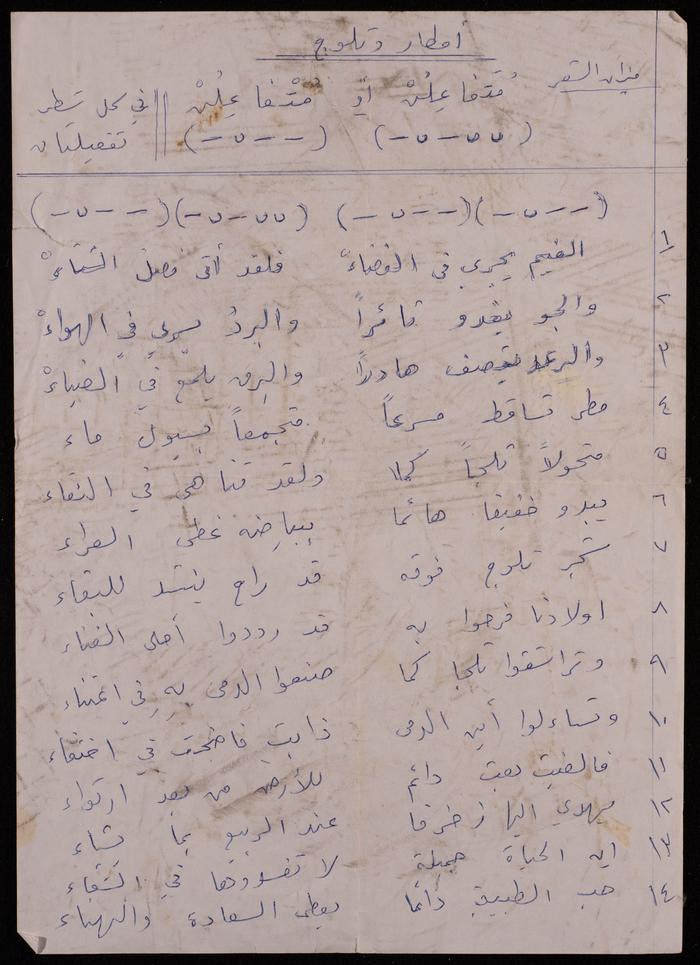 أمطار وثلوج
ميزان الشعر
مُتَفاعِلُنْ أو مُتْفاعِلُنْ || في كل شطر
(‎- ں - ں ں) (- ں - -) تفعيلتان
(- ں - -) (- ں - -) (- ں - ں ں) (- ں - -)
١ الغيم يجري في الفضاءْ فلقد أتى فصلُ الشتاءْ
٢ والجو يغدو ثائراً والبردُ يسري في الهواءْ
٣ والرعد يقصف هادراً والبرق يلمع في الضياءْ
٤ مطر تساقط مسرعاً متجمعاً بسيول ماء
٥ متحولاً ثلجاً كما ولقد تناهى في النقاء
٦ يبدو خفيفا هائما ببياضه غطى العراء
٧ شجر ثلوج فوقه قد راح ينشد للبقاء
٨ اولادنا فرحوا به قد رددوا أحلى الغناء
٩ وتراشقوا ثلجا كما صنعوا الدمى بِهِ في اعتناء
١٠ وتساءلوا أين الدمى ذابت فاضحت في اختفاء
١١ فالغيث دائم للأرض من بعد ارتواء
١٢ يهدي اليها زخرفا عند الربيع بما تشاء
١٣ ان الحياة جميلة لا تفسدوها في الشقاء
١٤ حب الطبيعة دائما يعطي السعادة والهناء